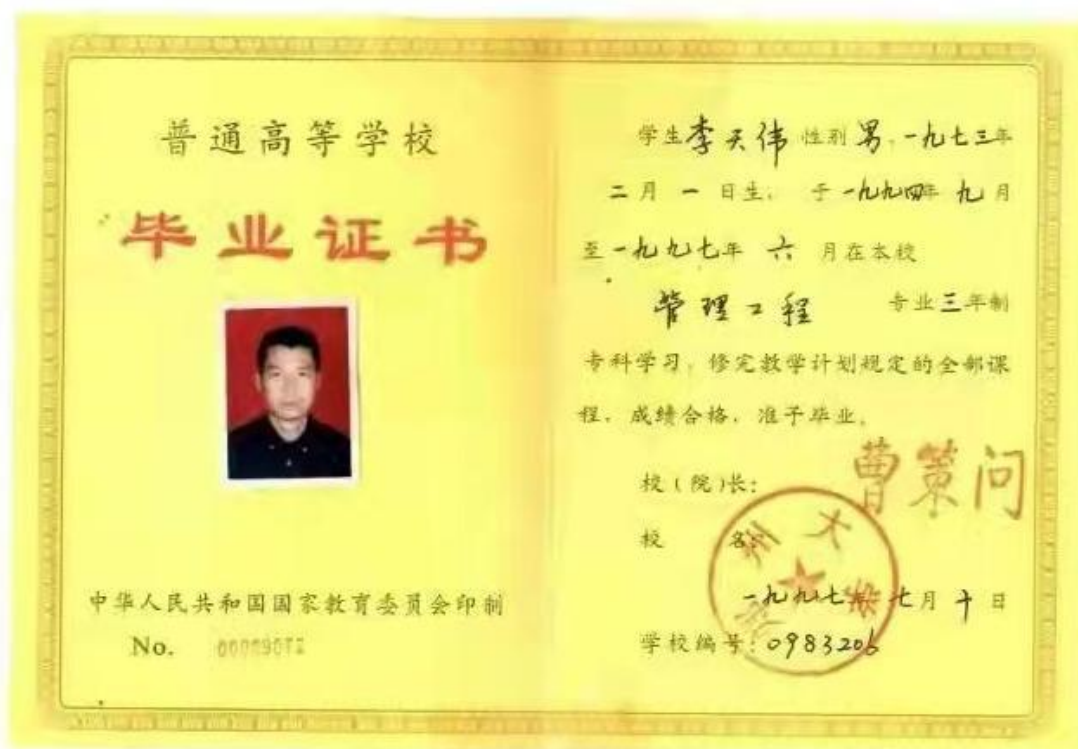 普通高等学校
毕业证书
中华人民共和国国家教育委员会印制
No.
学生李天伟 性别 男，一九七三年
二月 一 日生，于一九九四年 九月
至一九九七年 六 月在本校
管理工程 专业三年制
专科学习，修完教学计划规定的全部课
程，成绩合格，准予毕业。
校（院）长： 曹策问
校 名：
一九九七年 七月十日
学校编号：0983206